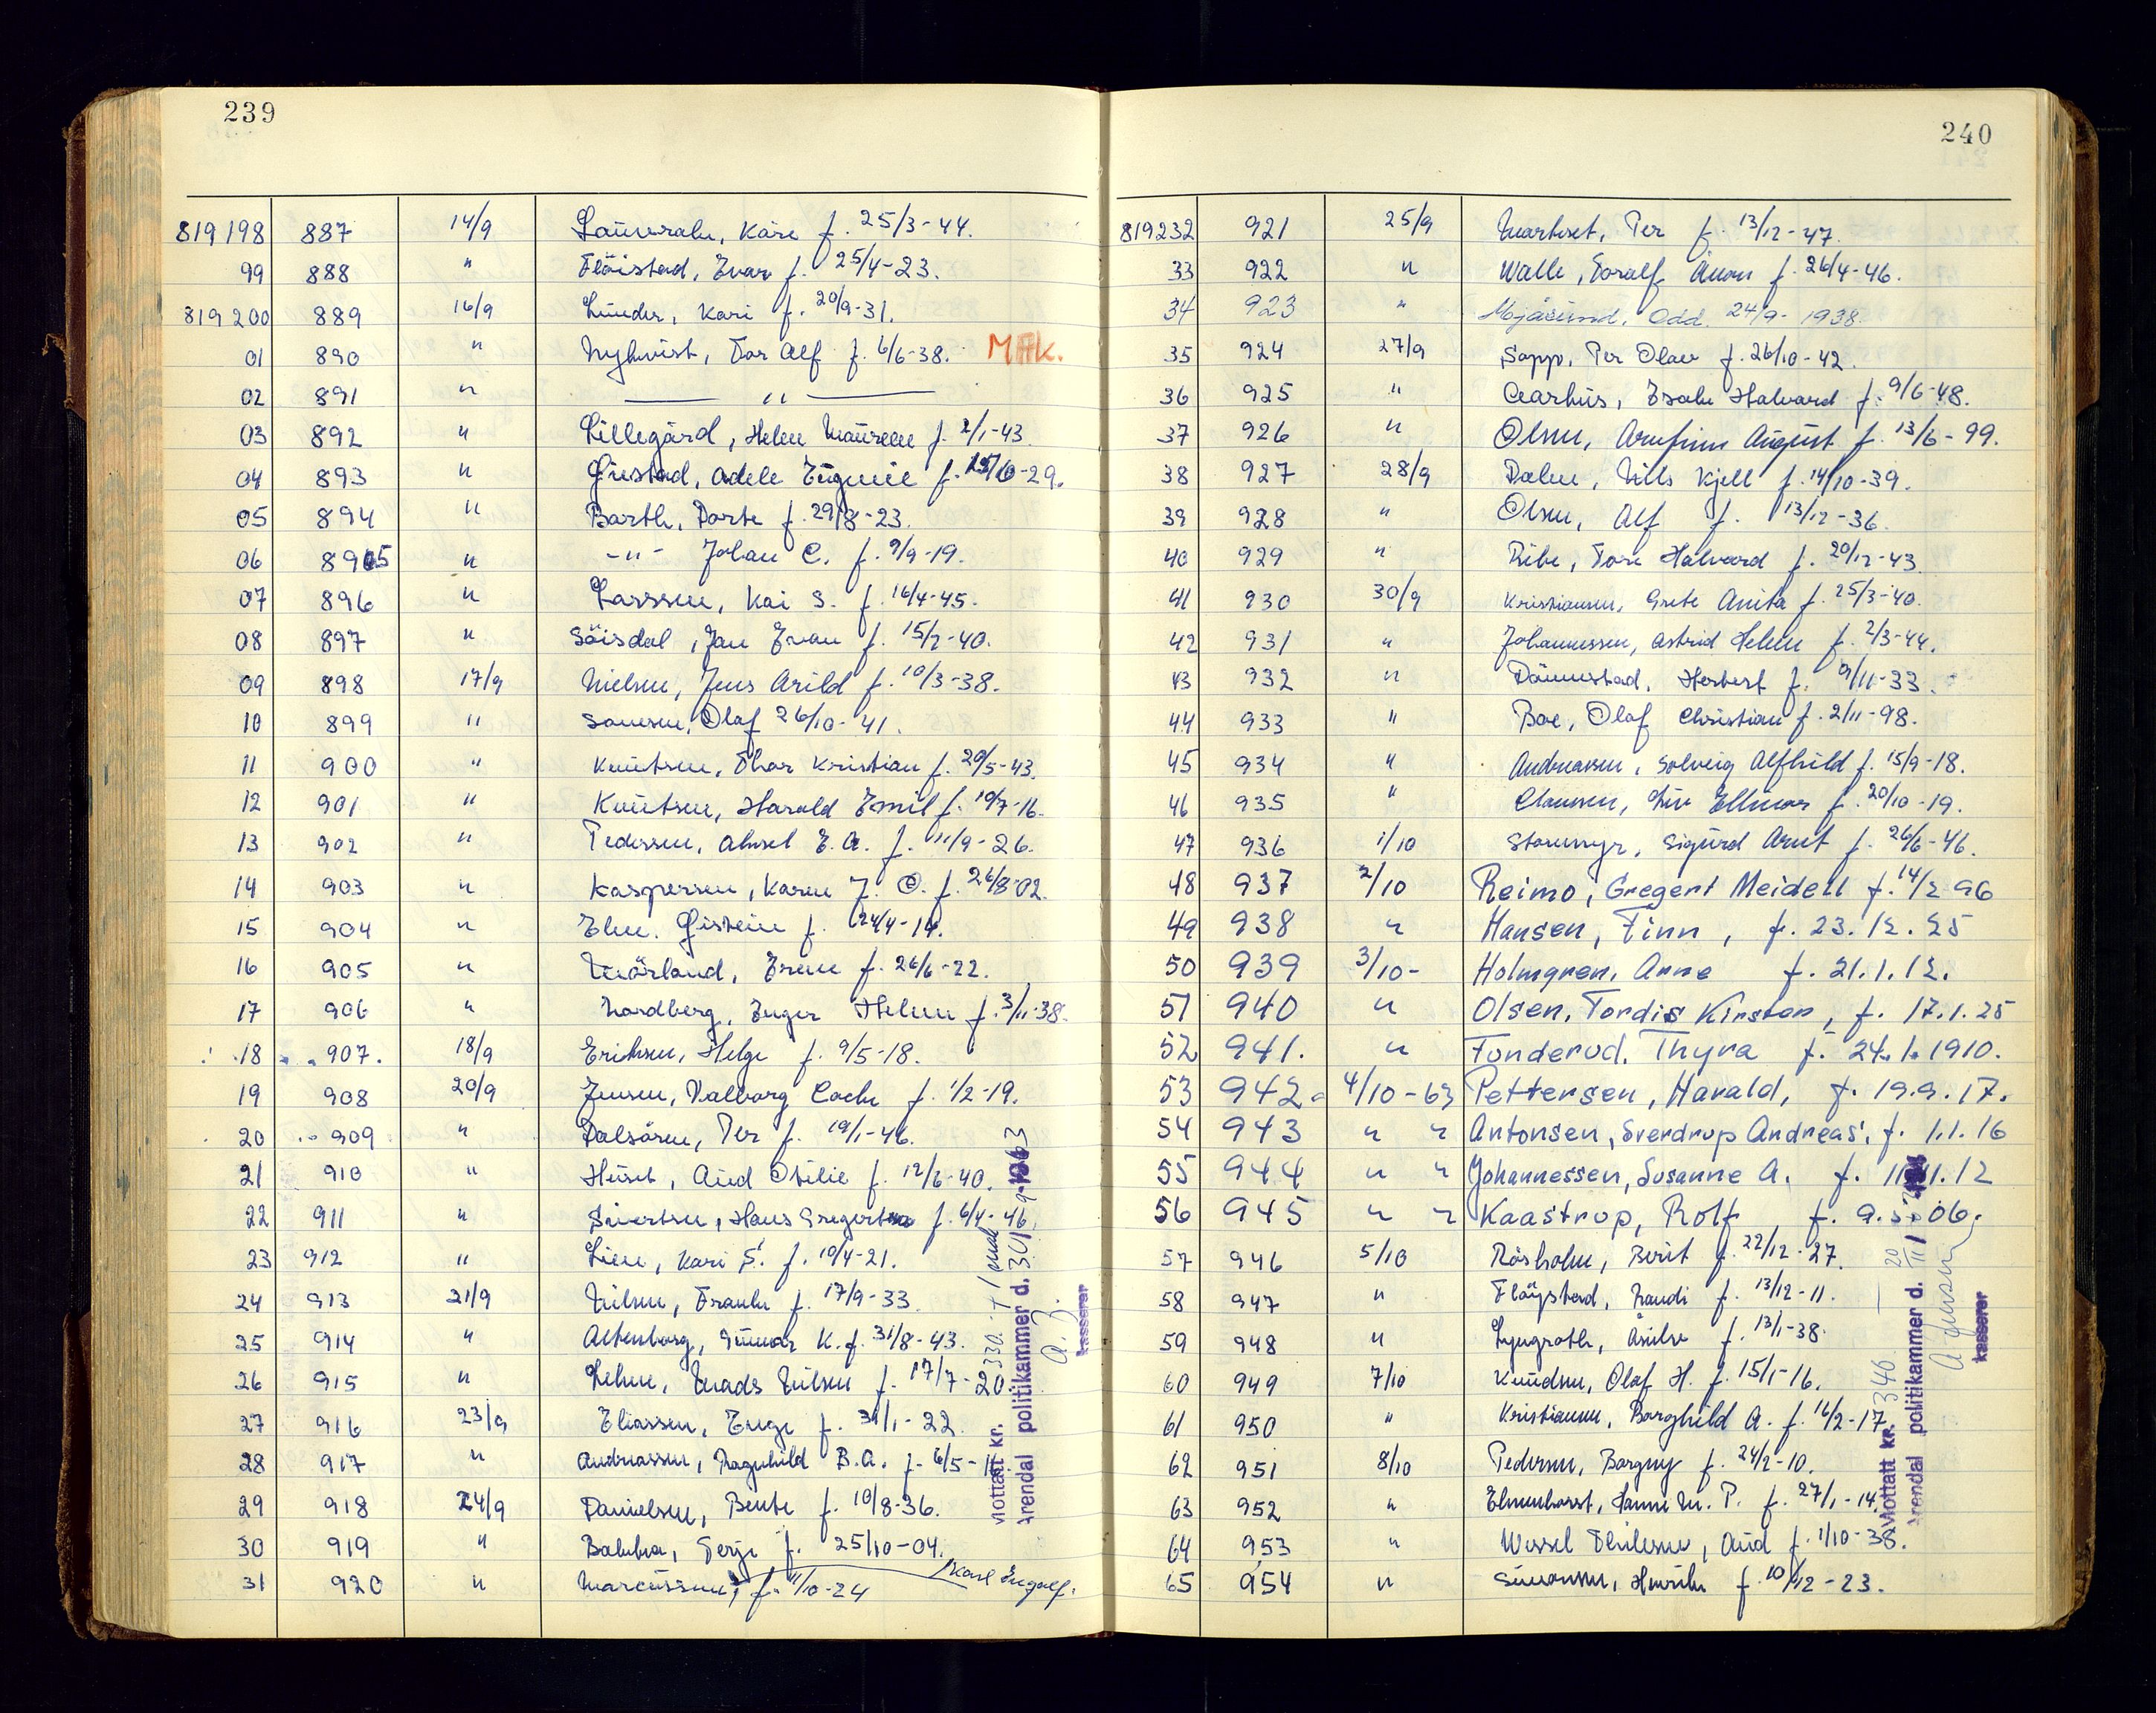 239
819198 887 14/9 Kåre f. 25/3-44.
99 888 " Flöistad, Ivar f. 25/4-23.
819200 889 16/9 Lunder, Kari f. 20/9-31.
01 890 " Nykvist, Tor Alf f. 6/6-38.
02 891 " — " —
03 892 " Lillegård, Helen Maureen f. 2/1-43.
04 893 " Gjestad, Adele Eugenie f. -29.
05 894 " Barth, Dorte f. 29/8-23.
06 895 " -"- Johan C. f. 9/9-19.
07 896 " Larssen, Kai S. f. 16/4-45.
08 897 " Söisdal, Jan Ivan f. 15/2-40.
09 898 17/9 Nielsen, Jens Arild f. 10/3-38.
10 899 " Olaf 26/10-41.
11 900 " Knutsen, Thor Kristian f. 20/5-43.
12 901 " Knutsen, Harold Emil f. 10/7-16.
13 902 " Pedersen, Aksel E. A. f. 11/9-26.
14 903 " Kaspersen, Karen J. O. f. 26/8-02.
15 904 " f. 24/4-14.
16 905 " Mörland, Irene f. 26/6-22.
17 906 " Nordberg, Inger Helene f. 3/11-38.
18 907. 18/9 Eriksen, Helge f. 9/5-18.
19 908 20/9 Jensen, Valborg f. 1/2-19.
20 909 " Dalsören, Per f. 19/1-46.
21 910 " Huset, Aud Otilie f. 12/6-40.
22 911 " Sivertsen, Hans Gregert f. 6/4-46.
23 912 " Lien, Kari S. f. 10/4-21.
24 913 21/9 Nilsen, Frank f. 17/9-33.
25 914 " Altenborg, Gunnar K. f. 31/8-43.
26 915 " Mads Nilsen f. 17/7-20.
27 916 23/9 Eliassen, Inge f. 31/1-22.
28 917 " Andreassen, Ragnhild B.A. f. 6/5-
29 918 24/9 Danielsen, Bente f. 10/8-36.
30 919 " Terje f. 25/10-04.
31 920 " Marcussen, f. 11/10-24 Karl Ingolf.
Mottatt kr. 330.-
Arendal politikammer d.
kasserer
240
819232 921 25/9 Per f. 13/12-47.
33 922 " Walle, Toralf f. 26/4-46.
34 923 " Mjåsund, Odd. 24/9-1938.
35 924 27/9 Sopp, Per Olav f. 26/10-42.
36 925 " Aarhus, Isak Halvard f. 9/6-48.
37 926 " Olsen, Arnfinn August f. 13/6-99.
38 927 28/9 Dalen, Nils Kjell f. 14/10-39.
39 928 " Olsen, Alf f. 13/12-36.
40 929 " Ribe, Tore Halvard f. 20/12-43.
41 930 30/9 Kristiansen, Grete Anita f. 25/3-40.
42 931 " Johannessen, Astrid Helene f. 2/3-44.
43 932 " Dönnestad, Herbert f. 9/11-33.
44 933 " Boe, Olaf Christian f. 2/11-98.
45 934 " Andreassen, Solveig Alfhild f. 15/9-18.
46 935 " Clausen, Liv Ellinor f. 20/10-19.
47 936 1/10 Sigurd Arnt f. 26/6-46.
48 937 2/10 Reimo, Gregert Meidell f. 14/2 96
49 938 " Hansen, Finn, f. 23.12.25
50 939 3/10- Holmgren, Anne f. 21.1.12.
51 940 " Olsen, Tordis Kirsten, f. 17.1.25
52 941. " Funderud, Thyra f. 24.1.1910.
53 942 4/10-63 Pettersen, Harald, f. 19.9.17.
54 943 " " Antonsen, Sverdrup Andreas, f. 1.1.16
55 944 " " Johannessen, Susanne A. f. 11.11.12
56 945 " " Kaastrup, Rolf f. 9.5.06.
57 946 5/10 Råsholm, Berit f. 22/12-27.
58 947 " Flöystad, Randi f. 13/12-11.
59 948 " Lyngroth, f. 13/1-38.
60 949 7/10 Knudsen, Olaf H. f. 15/1-16.
61 950 " Kristiansen, Borghild A. f. 16/2-17.
62 951 8/10 Pedersen, Borgny f. 24/2-10.
63 952 " Elmenhorst, Hanne M. P. f. 27/1-14.
64 953 " Wessel Aud f. 1/10-38.
65 954 " Simonsen, Henrik f. 10/12-23.
Mottatt kr. 346
Arendal politikammer d.
kasserer